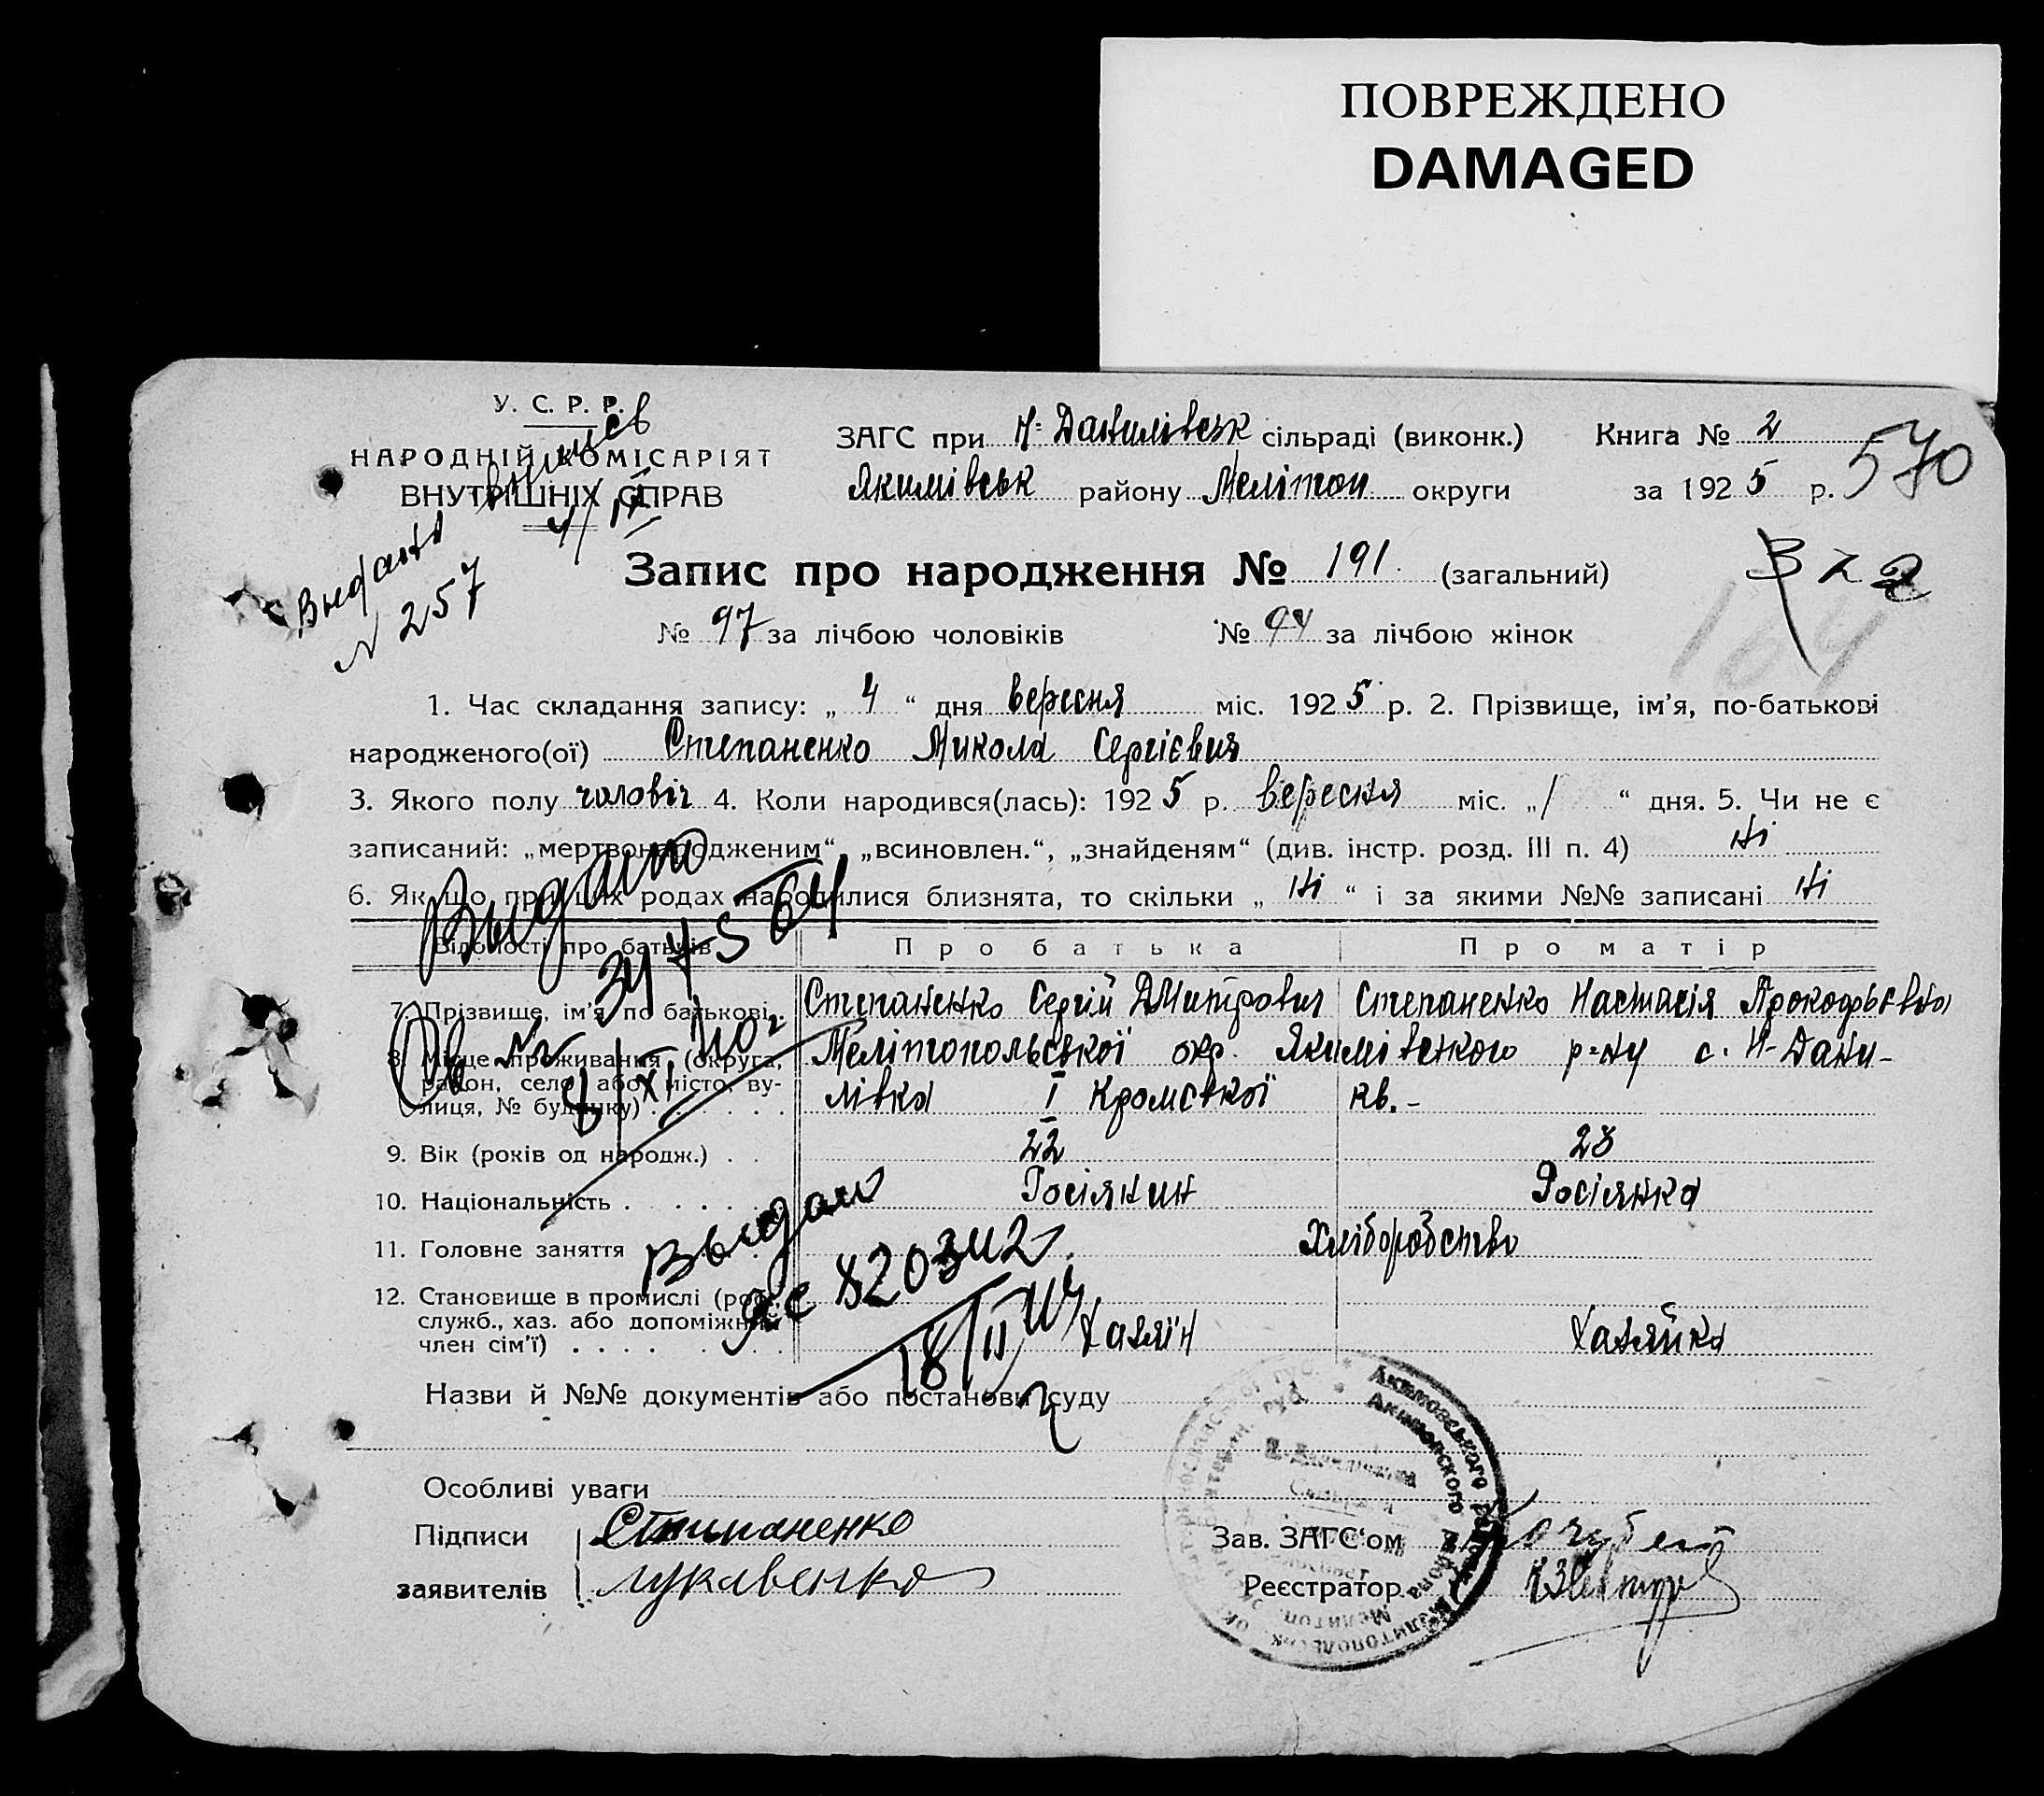 ПОВРЕЖДЕНО
DAMAGED
У. С. Р. Р.
НАРОДНІЙ КОМІСАРІЯТ
ВНУТРІШНІХ СПРАВ
ЗАГС при Н-Данилівськ сільраді (виконк.) Книга № 2
Якимівськ району Мелітоп округи за 1925 р. 570
N 257
Запис про народження № 191. (загальний)
№ 97 за лічбою чоловіків № 94 за лічбою жінок
164
1. Час складання запису: „ 4 “ дня вересня міс. 1925 р. 2. Прізвище, ім'я, по-батькові
народженого(ої) Степаненко Микола Сергієвич
3. Якого полу чоловіч 4. Коли народився(лась): 1925 р. вересня міс. „ 1 “ дня. 5. Чи не є
записаний: „мертвонародженим“, „всиновлен.“, „знайденям“ (див. інстр. розд. III п. 4) Ні
6. Якщо при цих родах народилися близнята, то скільки „ Ні “ і за якими №№ записані Ні
Відомості про батьків Про батька Про матір
7. Прізвище, ім'я по батькові. Степаненко Сергій Дмитрович Степаненко Настасія Прокофьєвна
8. Місце проживання (округа, Мелітопольської окр. Якимівського р-ну с. Н-Дани-
район, село або місто, ву-
лиця, № будинку) лівка I Кромської кв.-
9. Вік (років од народж.) 22 28
10. Національність Росіянин Росіянка
11. Головне заняття Хліборобство
12. Становище в промислі (роб.,
служб., хаз. або допоміжний
член сім'ї) Хазяїн Хазяйка
Выдано
Выдано
18/II
Назви й №№ документів або постанови суду
Особливі уваги
Підписи Степаненко Зав. ЗАГС'ом Кочубей
заявителів Лукавенко Реєстратор